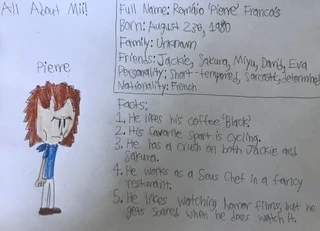 All About Mii!
Pierre
Full Name: Romário 'Pierre' Francois
Born: August 23rd, 1980
Family: Unknown
Friends: Jackie, Sakura, Miyu, David, Eva
Personality: Short-tempered, Sarcastic, determined
Nationality: French
Facts:
1. He likes his coffee 'Black'.
2. His favorite sport is cycling.
3. He has a crush on both Jackie and
Sakura.
4. He works as a Sous Chef in a fancy
resturant.
5. He likes watching horror films, but he
gets scared when he does watch it.